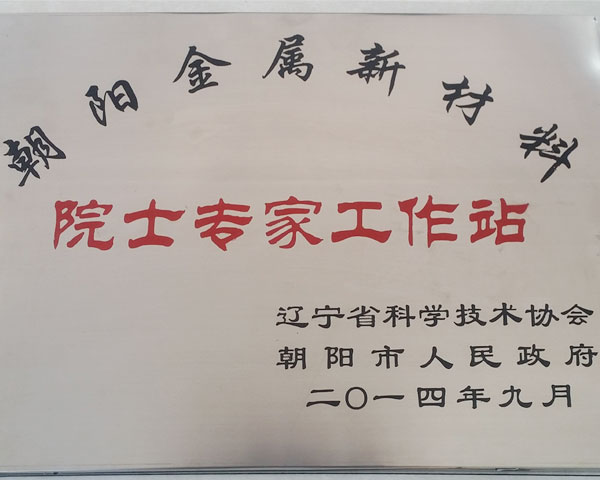 朝阳金属新材料
院士专家工作站
辽宁省科学技术协会
朝阳市人民政府
二〇一四年九月